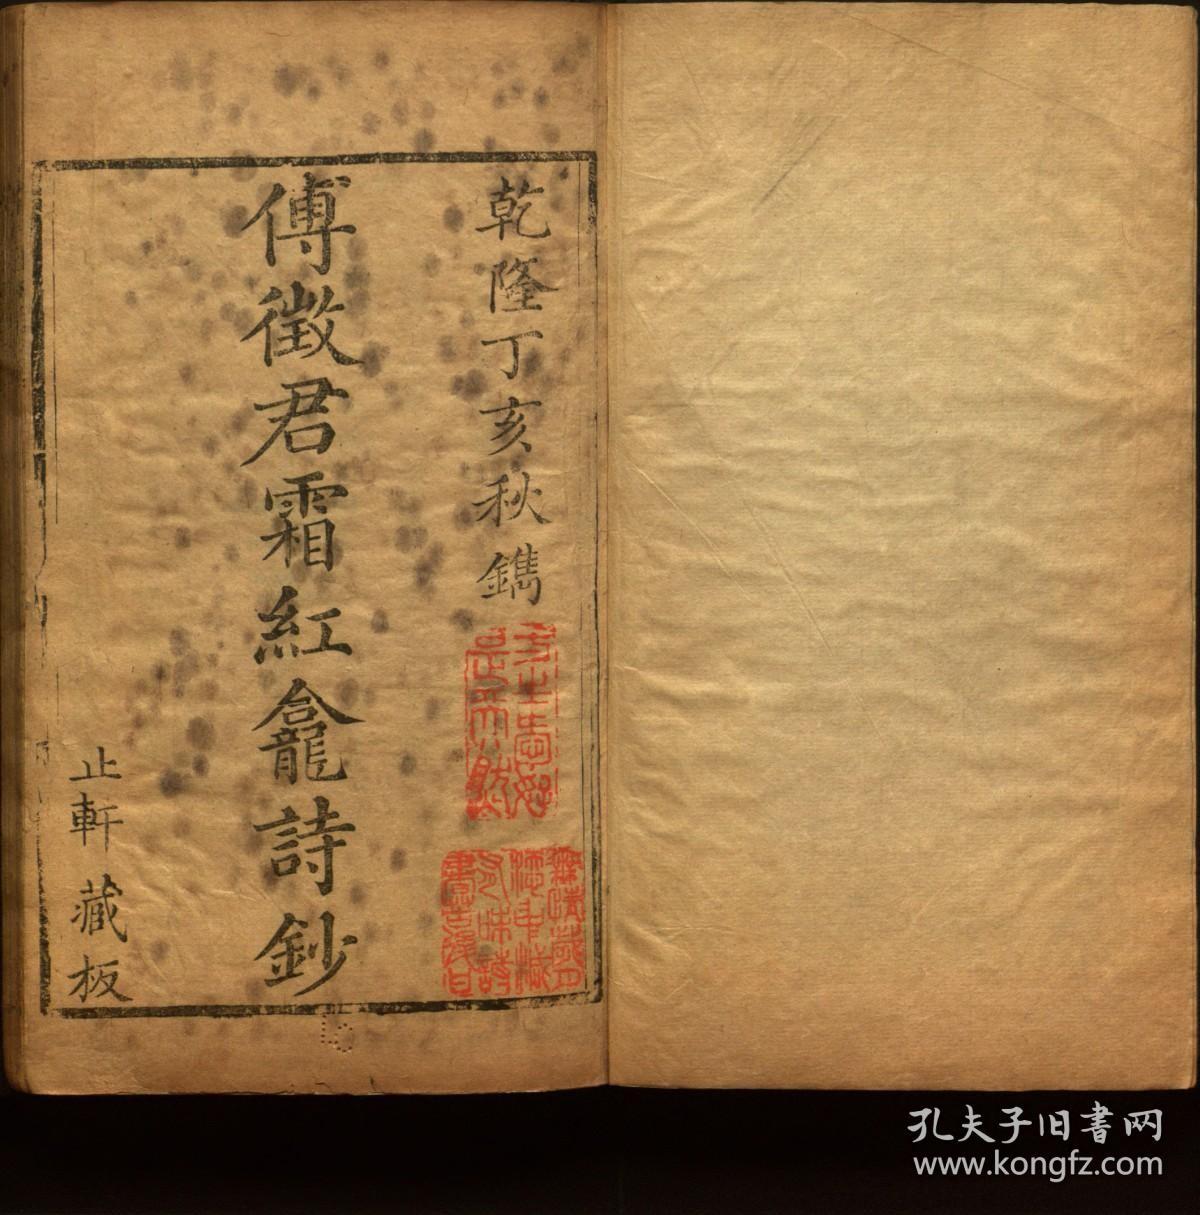 乾隆丁亥秋鐫
傅徵君霜紅龕詩鈔
止軒藏板
孔夫子旧书网
www.kongfz.com